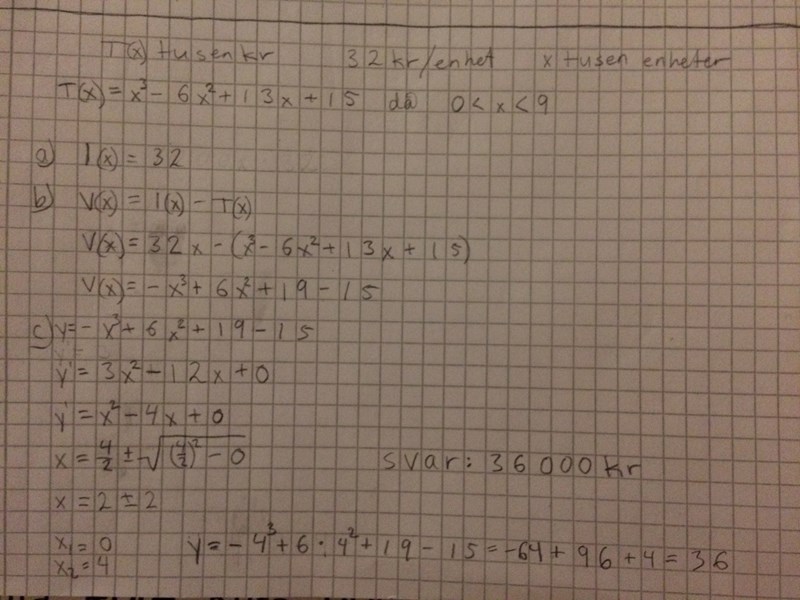 T(x) tusen kr 32 kr/enhet x tusen enheter
T(x) = x³ - 6x² + 13x + 15 då 0 < x < 9
a) I(x) = 32
b) V(x) = I(x) - T(x)
V(x) = 32x - (x³ - 6x² + 13x + 15)
V(x) = -x³ + 6x² + 19 - 15
c) y = -x³ + 6x² + 19 - 15
y' = 3x² - 12x + 0
y' = x² - 4x + 0
x = 4/2 ± √((4/2)² - 0)
svar: 36000 kr
x = 2 ± 2
x₁ = 0
x₂ = 4
y = -4³ + 6 · 4² + 19 - 15 = -64 + 96 + 4 = 36